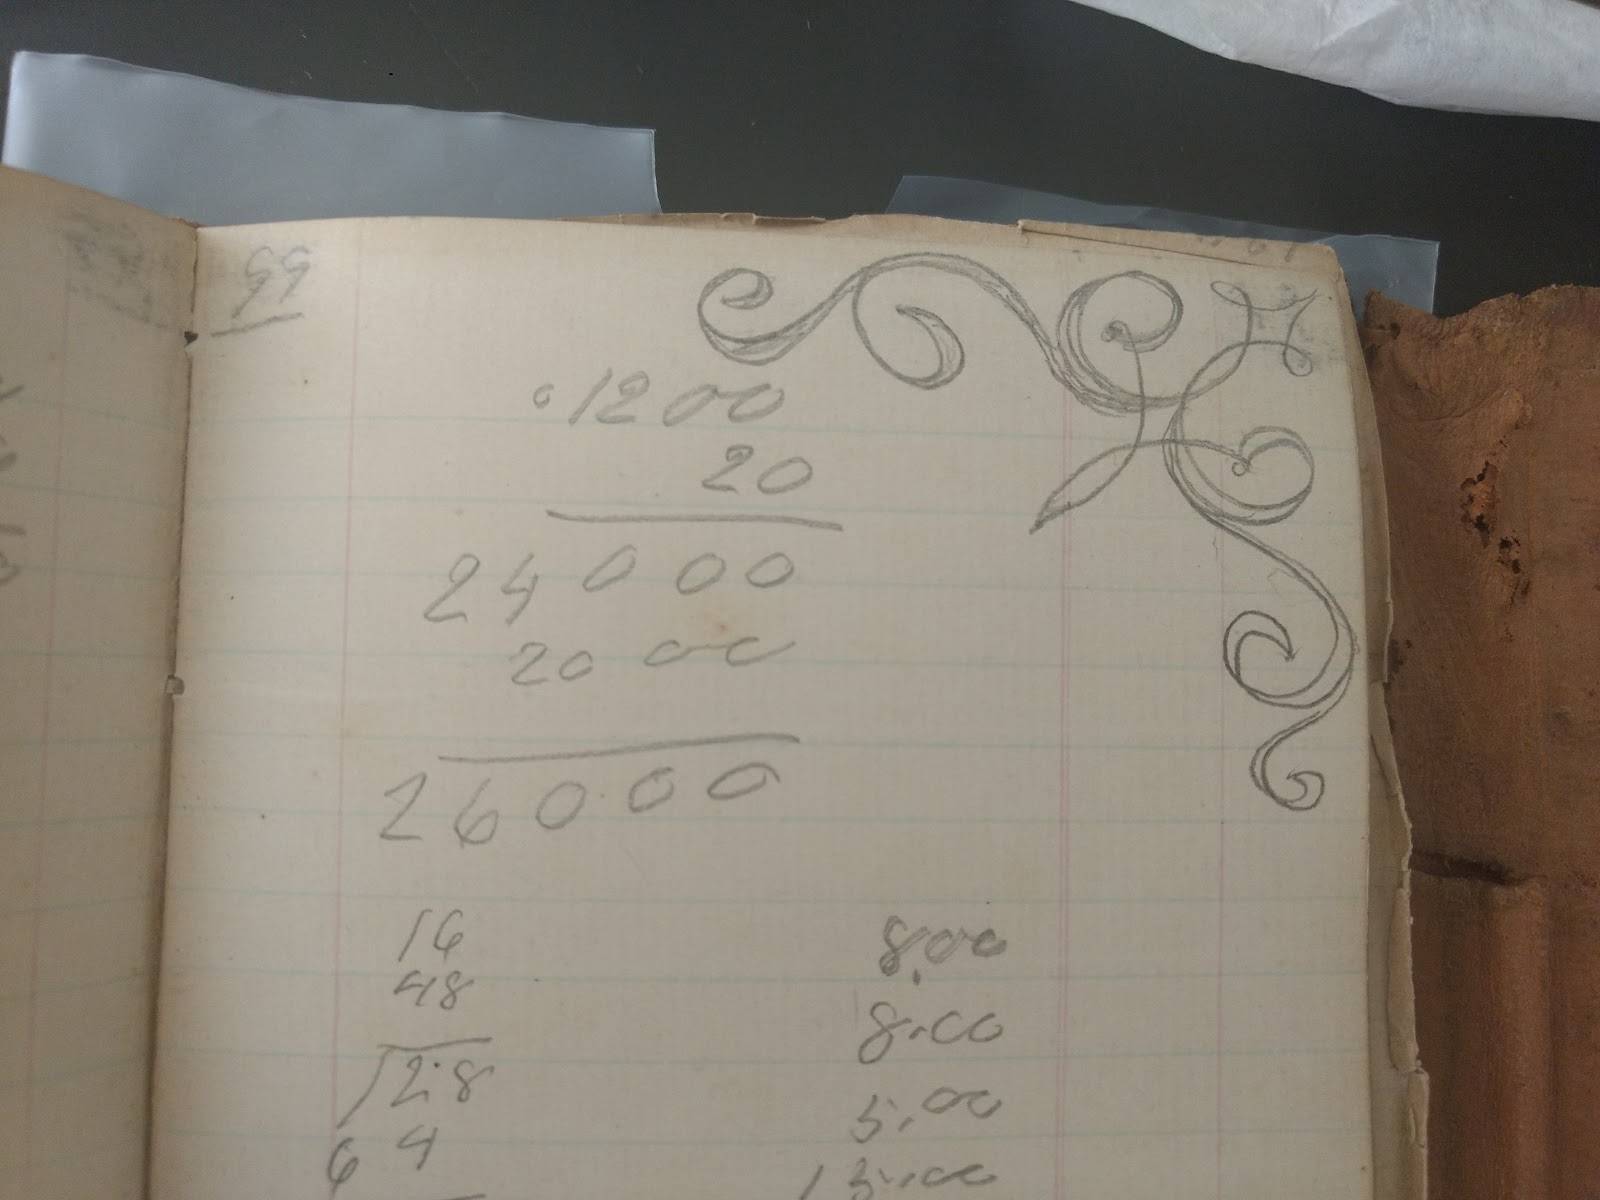 55
1200
20
24000
2000
26000
16
48
128
64
8.00
8.00
5.00
15.00